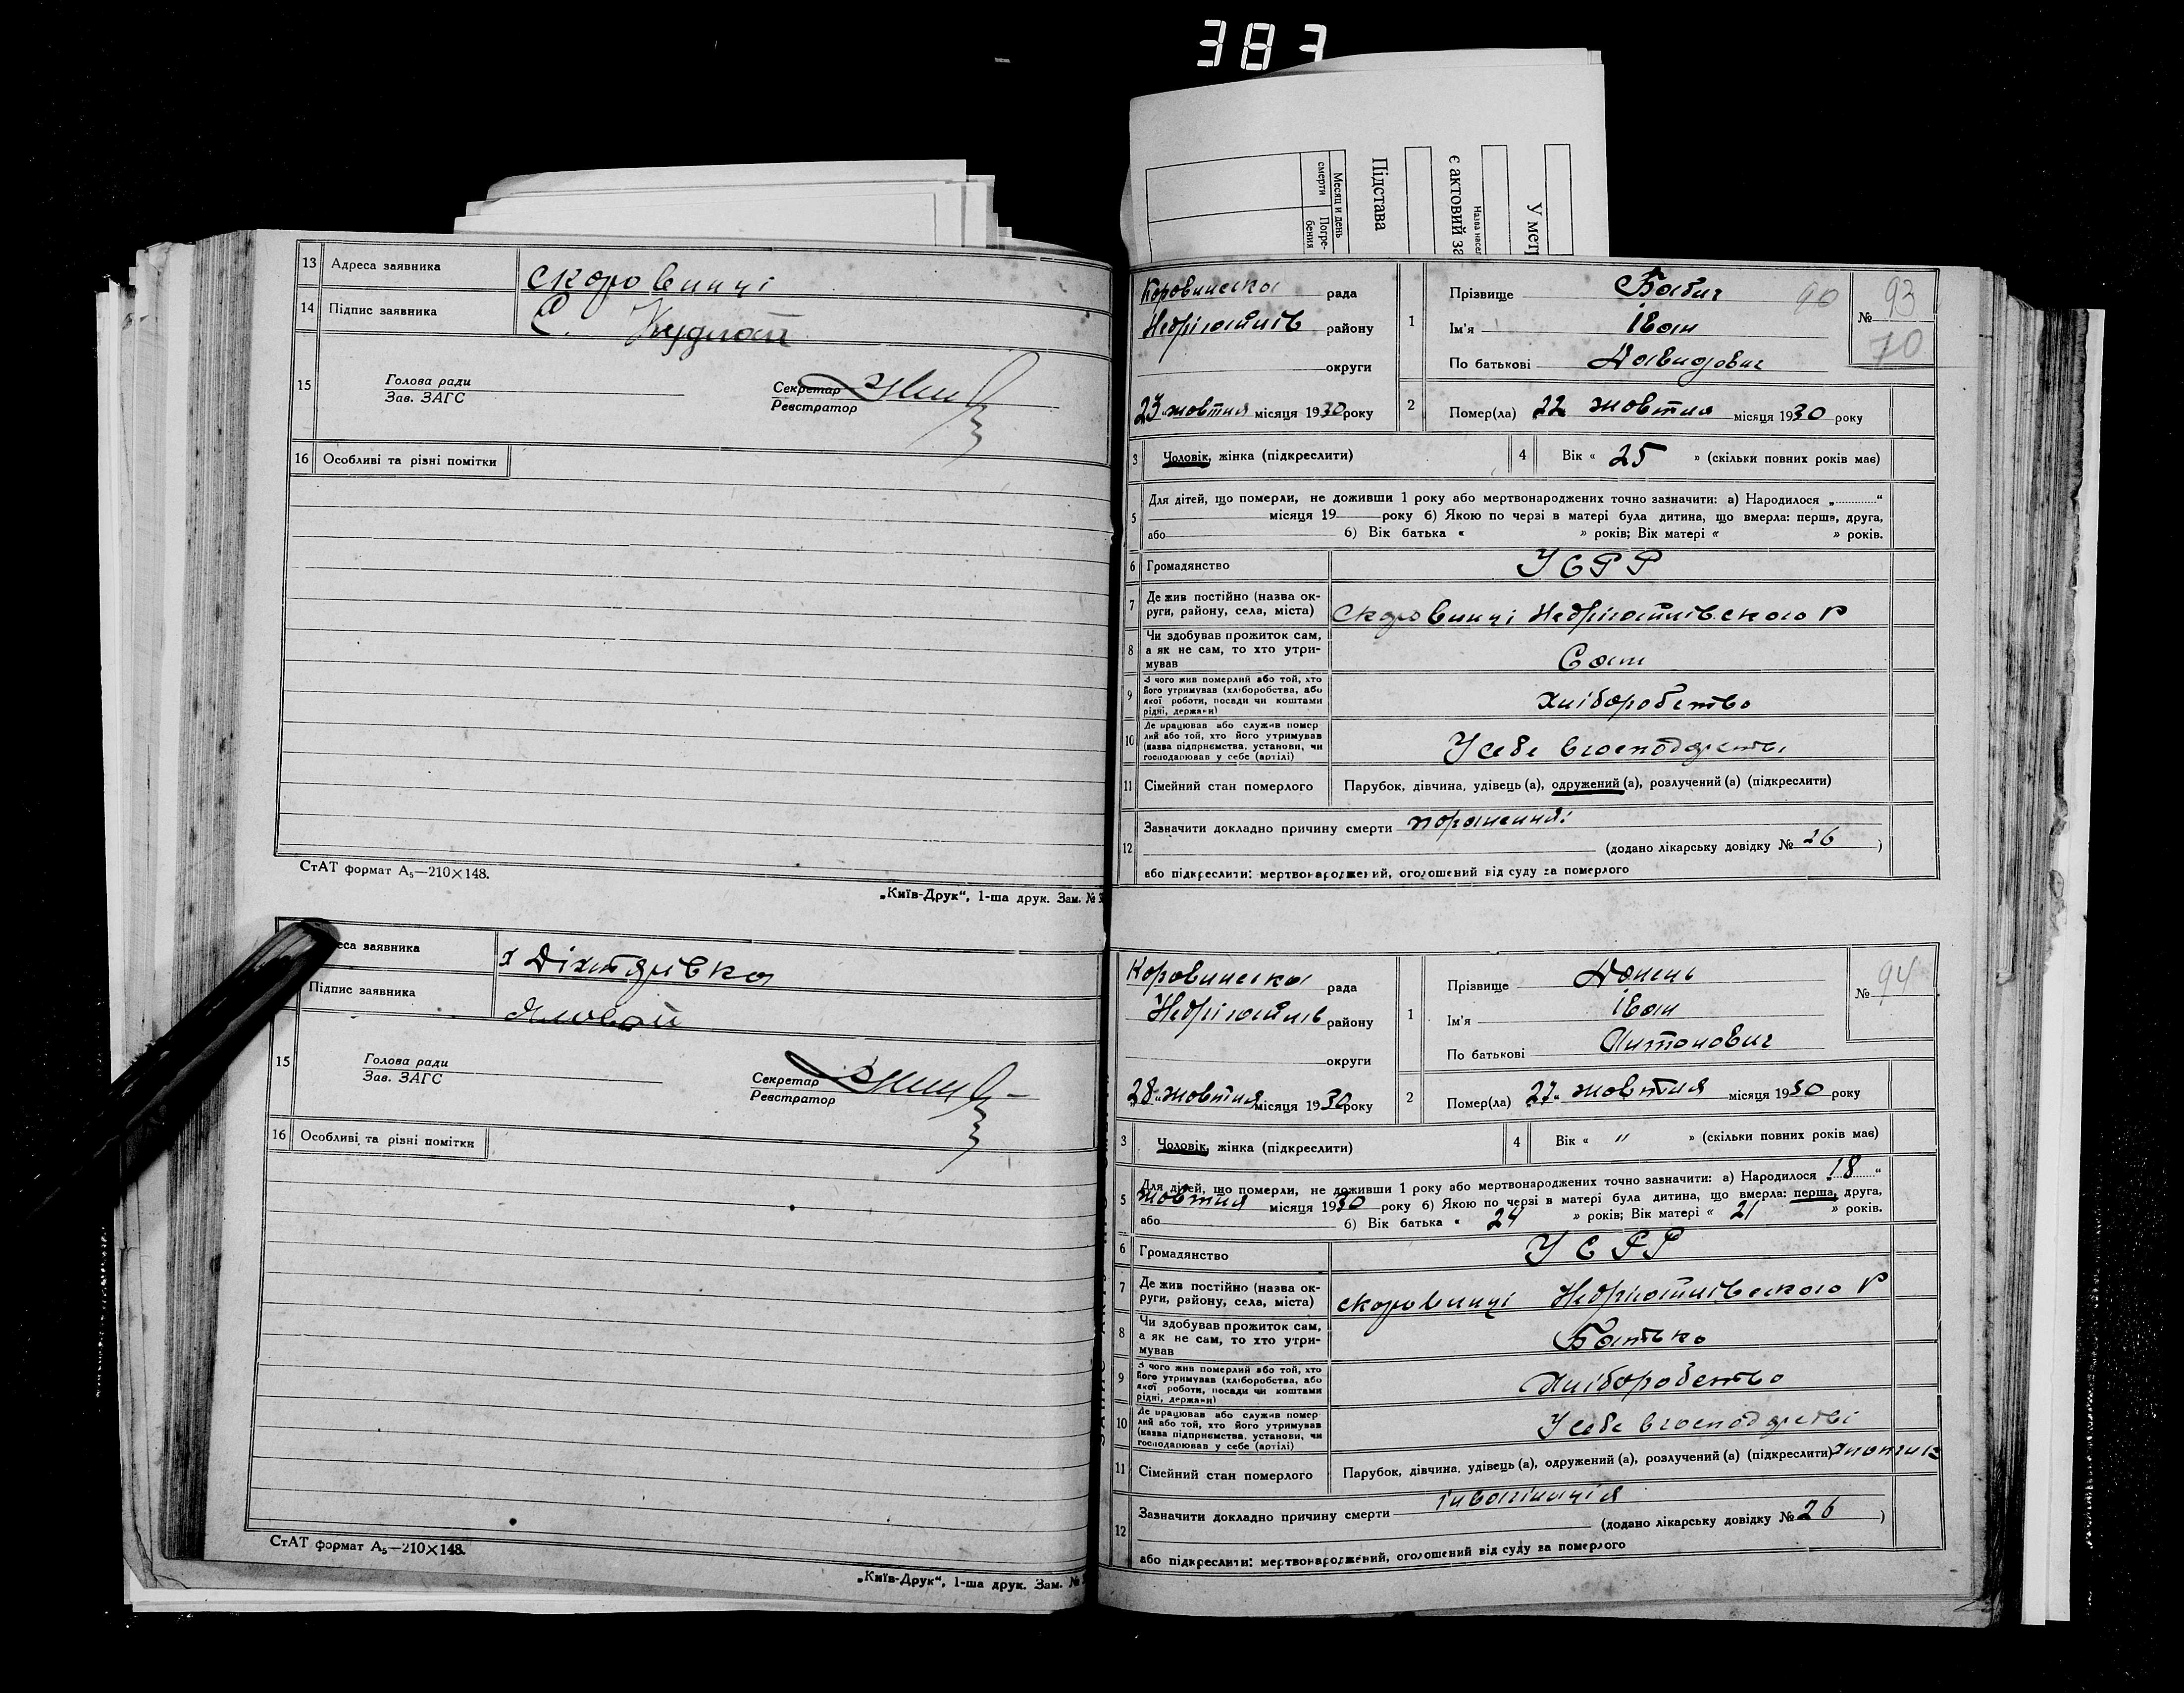 383
Месяц и день
смерти
Погре-
бения
Підстава
є актовий за
Назва насел
У метр
13 Адреса заявника скоровинці
14 Підпис заявника
15 Голова ради
Зав. ЗАГС
Секретар
Реєстратор
16 Особливі та різні помітки
СтАТ формат А₅—210×148.
„Київ-Друк“, 1-ша друк. Зам. №
еса заявника х Діхтярівка
Підпис заявника
15 Голова ради
Зав. ЗАГС
Секретар
Реєстратор
16 Особливі та різні помітки
СтАТ формат А₅—210×148.
„Київ-Друк“, 1-ша друк. Зам. №
Коровинська рада
Недригайлів району
округи
23 жовтня місяця 1930 року
1 Прізвище Бабич 90
Ім'я Іван
По батькові Давидович
№ 93
70
2 Помер(ла) 22 жовтня місяця 1930 року
3 Чоловік, жінка (підкреслити)
4 Вік « 25 » (скільки повних років має)
5 Для дітей, що померли, не доживши 1 року або мертвонароджених точно зазначити: а) Народилося „ “
місяця 19 року б) Якою по черзі в матері була дитина, що вмерла: перша, друга,
або б) Вік батька « » років; Вік матері « » років.
6 Громадянство УСРР
7 Де жив постійно (назва ок-
руги, району, села, міста) скоровинці Недригайлівского Р
8 Чи здобував прожиток сам,
а як не сам, то хто утри-
мував Сам
9 З чого жив померлий або той, хто
його утримував (хліборобства, або
якої роботи, посади чи коштами
рідні, держави) Хліборобство
10 Де працював або служив помер
лий або той, хто його утримував
(назва підприємства, установи, чи
господарював у себе (артілі) У себе в господарстві
11 Сімейний стан померлого Парубок, дівчина, удівець (а), одружений (а), розлучений (а) (підкреслити)
12 Зазначити докладно причину смерти поранення
(додано лікарську довідку № 26 )
або підкреслити: мертвонароджений, оголошений від суду за померлого
Коровинська рада
Недригайлів району
округи
28 жовтня місяця 1930 року
1 Прізвище Донець
Ім'я Іван
По батькові Антонович
№ 94
2 Помер(ла) 27 жовтня місяця 1930 року
3 Чоловік, жінка (підкреслити)
4 Вік « " » (скільки повних років має)
5 Для дітей, що померли, не доживши 1 року або мертвонароджених точно зазначити: а) Народилося „18“
жовтня місяця 1930 року б) Якою по черзі в матері була дитина, що вмерла: перша, друга,
або б) Вік батька « 24 » років; Вік матері « 21 » років.
6 Громадянство УСРР
7 Де жив постійно (назва ок-
руги, району, села, міста) скоровинці Недригайлівского Р
8 Чи здобував прожиток сам,
а як не сам, то хто утри-
мував Батько
9 З чого жив померлий або той, хто
його утримував (хліборобства, або
якої роботи, посади чи коштами
рідні, держави) Хліборобство
10 Де працював або служив помер
лий або той, хто його утримував
(назва підприємства, установи, чи
господарював у себе (артілі) У себе в господарстві
11 Сімейний стан померлого Парубок, дівчина, удівець (а), одружений (а), розлучений (а) (підкреслити) хлопчик
12 Зазначити докладно причину смерти
(додано лікарську довідку № 26 )
або підкреслити: мертвонароджений, оголошений від суду за померлого